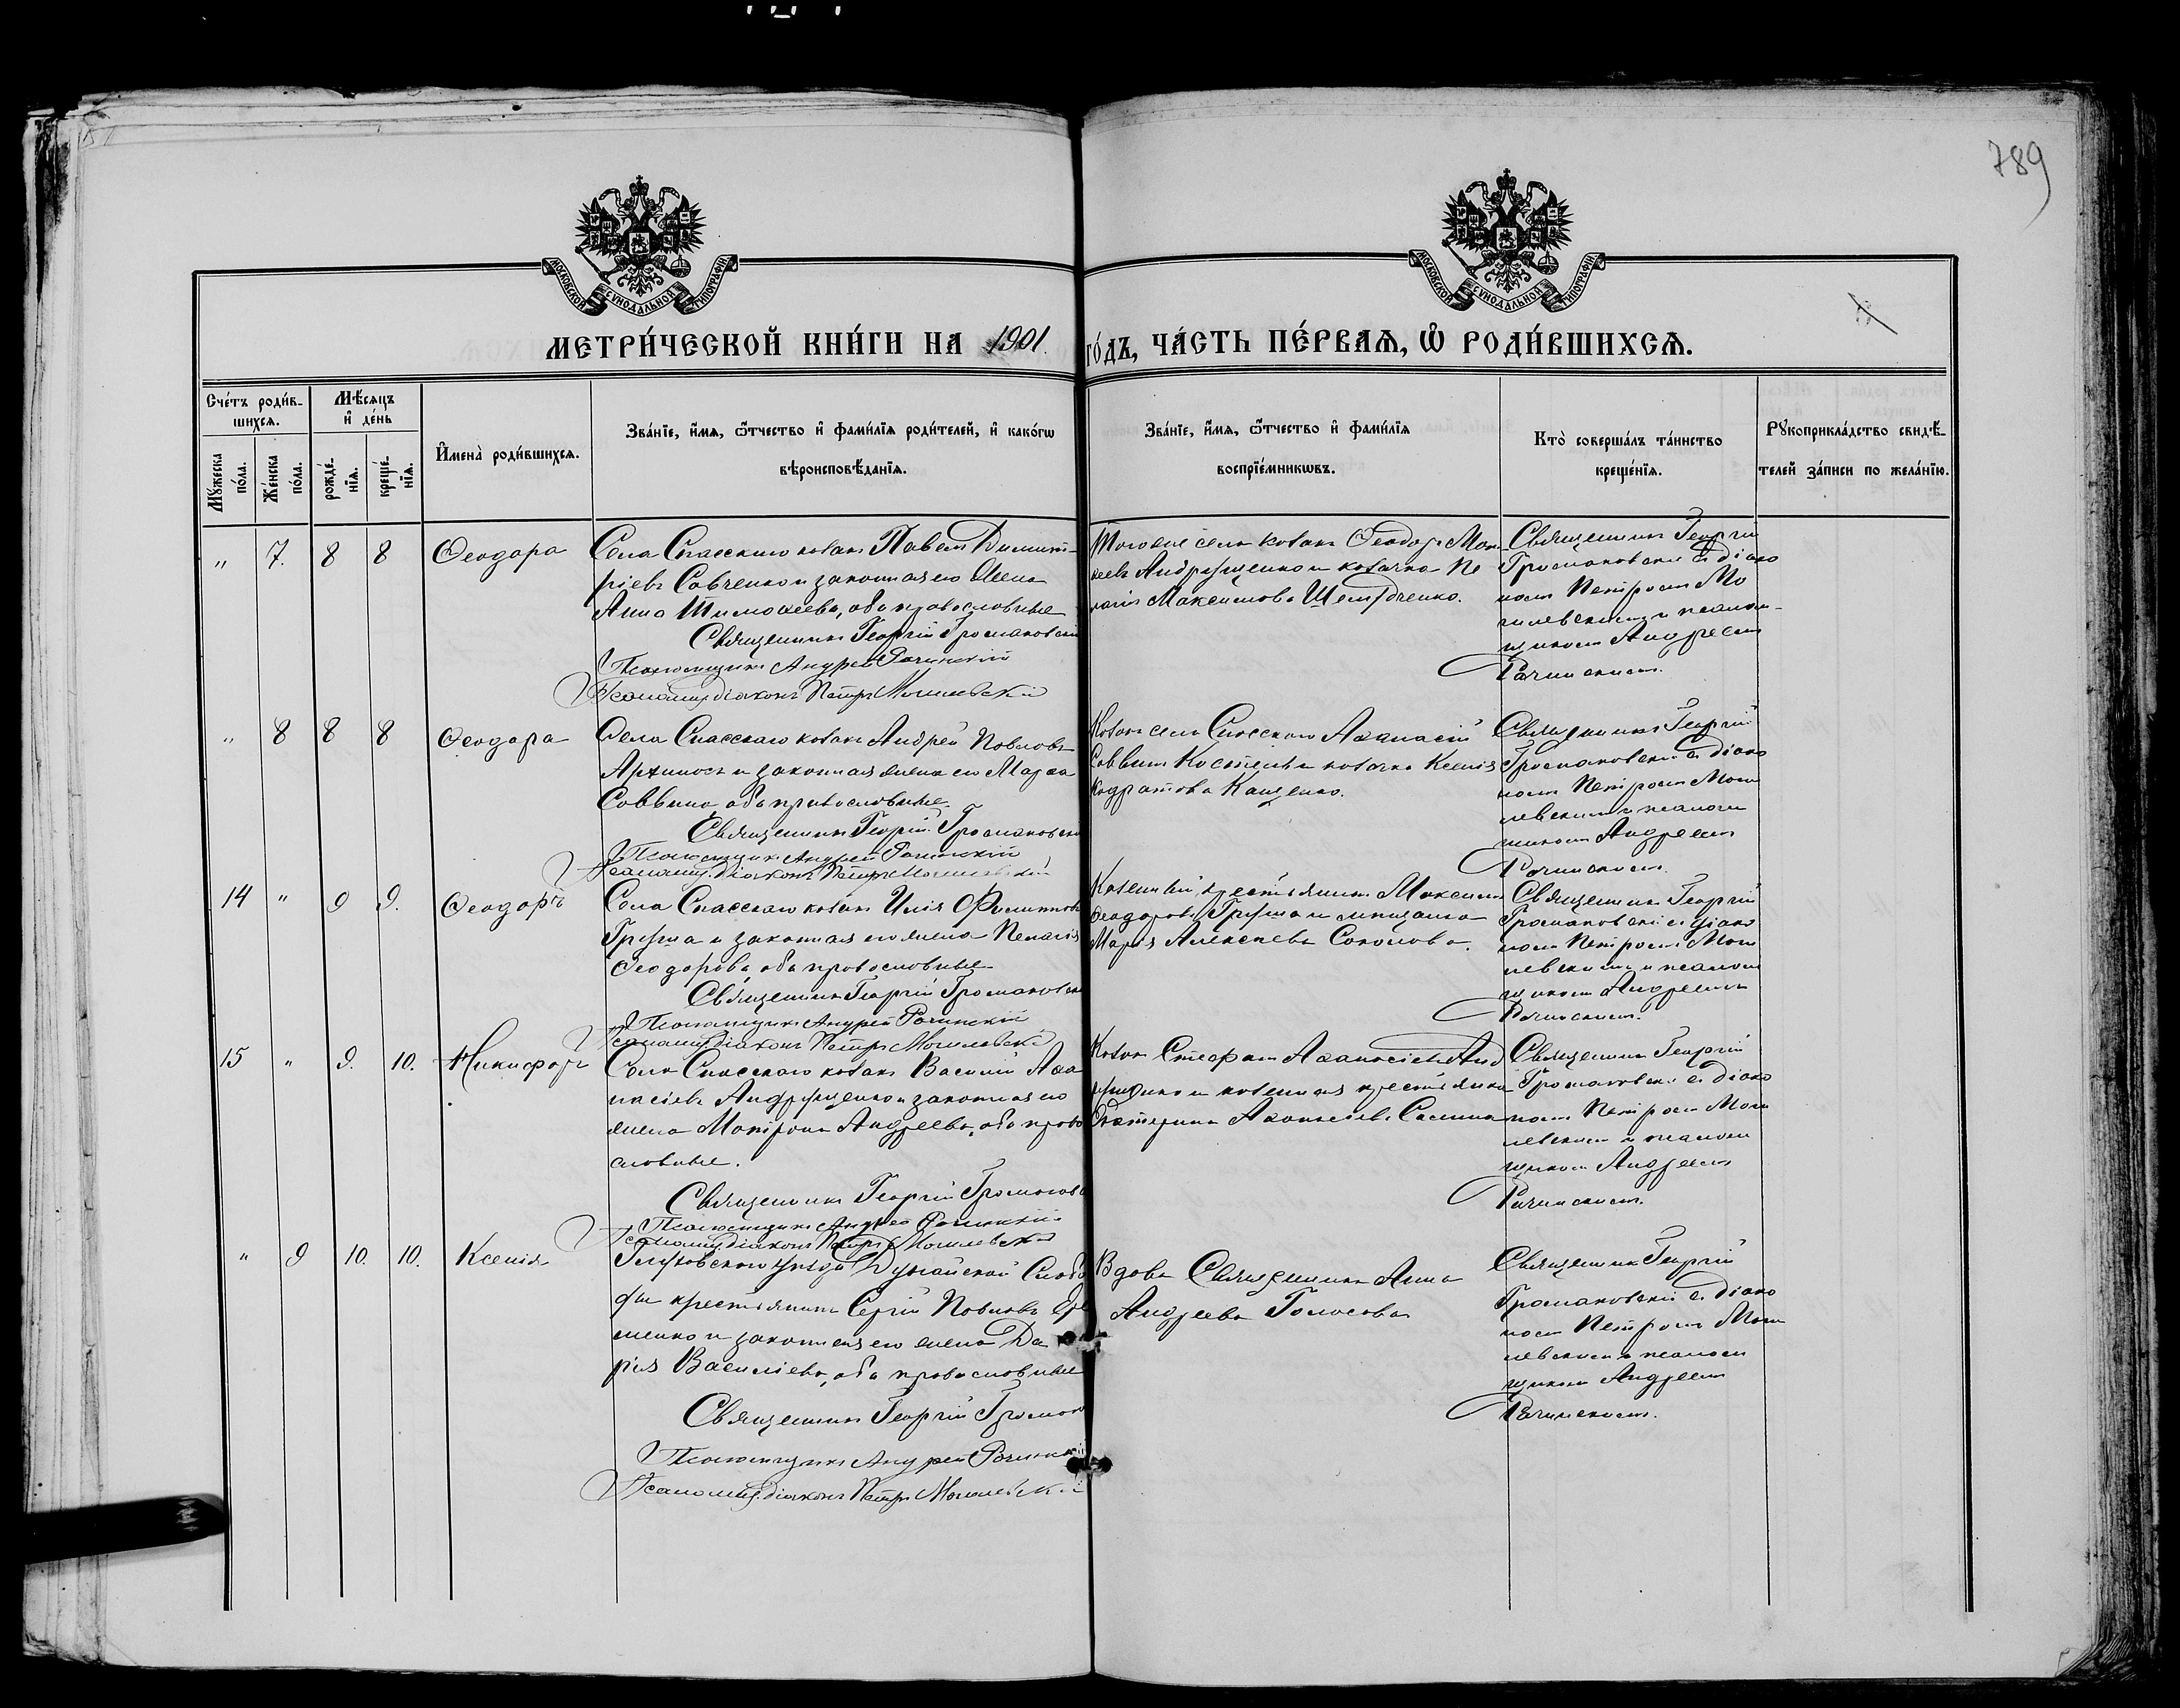 789
МОСКОВСКОЙ СѴНОДАЛЬНОЙ ТИПОГРАФІИ
МОСКОВСКОЙ СѴНОДАЛЬНОЙ ТИПОГРАФІИ
МЕТРИ́ЧЕСКОЙ КНИ́ГИ НА 1901 ГО́ДЪ, ЧА́СТЬ ПЕ́РВАѦ, Ѡ҆ РОДИ́ВШИХСѦ.
Сче́тъ роди́в-
шихсѧ.
Мѣ́сѧцъ
и҆ де́нь
Мꙋ́жеска
по́ла.
Же́нска
по́ла.
рожде́-
нїѧ.
креще́-
нїѧ.
И҆мена̀ роди́вшихсѧ.
Зва́нїе, и҆́мѧ, ѻ҆́тчество и҆ фами́лїѧ роди́телей, и҆ како́гѡ
вѣроисповѣ́данїѧ.
Зва́нїе, и҆́мѧ, ѻ҆́тчество и҆ фами́лїѧ
воспрїе́мникѡвъ.
Кто̀ соверша́лъ та́инство
креще́нїѧ.
Рꙋкоприкла́дство свидѣ́-
телей за́писи по жела́нїю.
„ 7. 8 8 Ѳеодора
Села Спасскаго козакъ Павелъ Димит-
ріевъ Савченко и законная его жена
Анна Тимоѳеева, оба православные
Священникъ Георгій Громаковскій
Псаломщикъ Андрей Рачинскій
Псаломщ. діаконъ Петръ Могилевскій
Тогоже села козакъ Ѳеодоръ
Андрущенко и козачка Пе
лагія Максимова
Священникъ Георгій
Громаковскій съ діако
номъ Петромъ Мо
гилевскимъ и псалом-
щикомъ Андреемъ
Рачинскимъ.
„ 8 8 8 Ѳеодора
Села Спасскаго козакъ Андрей Павловъ
и законная жена его Марѳа
Саввина оба православные
Священникъ Георгій Громаковскі
Псаломщикъ Андрей Рачинскій
Псаломщ. діаконъ Петръ Могилевскій
Козакъ села Спасскаго Аѳанасій
Саввинъ и козачка Ксенія
Кащенко.
Священникъ Георгій
Громаковскій съ діако
номъ Петромъ Моги
левскимъ и псаломщ
икомъ Андреемъ
Рачинскимъ.
14 „ 9 9. Ѳеодоръ
Села Спасскаго козакъ Илія Филипповъ
Груша и законная его жена Пелагія
Ѳеодорова, оба православные
Священникъ Георгій Громаковск
Псаломщикъ Андрей Рачинскій
Псаломщ. діаконъ Петръ Могилевскі
Казенный крестьянинъ Максимъ
Ѳеодоровъ Груша и мѣщанка
Марія Алексѣева Соколова.
Священникъ Георгій
Громаковскій съ діако
номъ Петромъ Моги
левскимъ и псалом
щикомъ Андреемъ
Рачинскимъ.
15 „ 9. 10. Никифоръ
Села Спасскаго козакъ Василій Аѳа
насіевъ Андрущенко и законная его
жена Матрона Андреева, оба право
славные.
Священникъ Георгій Громаков
Псаломщикъ Андрей Рачинскій
Псаломщ. діаконъ Петръ Могилевскій
Козакъ Стефанъ Аѳанасіевъ Анд
рущенко и казенная крестьянка
Екатерина Аѳанасіева
Священникъ Георгій
Громаковскій съ діако
номъ Петромъ Моги
левскимъ и псалом
щикомъ Андреемъ
Рачинскимъ.
„ 9 10. 10. Ксенія
Глуховскаго уѣзда Слобо
ды крестьянинъ Сергій Павловъ Ере
менко и законная его жена Да
рія Василіева, оба православные
Священникъ Георгій Громак
Псаломщикъ Андрей Рачинскій
Псаломщ. діаконъ Петръ Могилевскій
Вдова Священника Анна
Андреева Голосова
Священникъ Георгій
Громаковскій съ діако
номъ Петромъ Моги
левскимъ и псалом
щикомъ Андреемъ
Рачинскимъ.